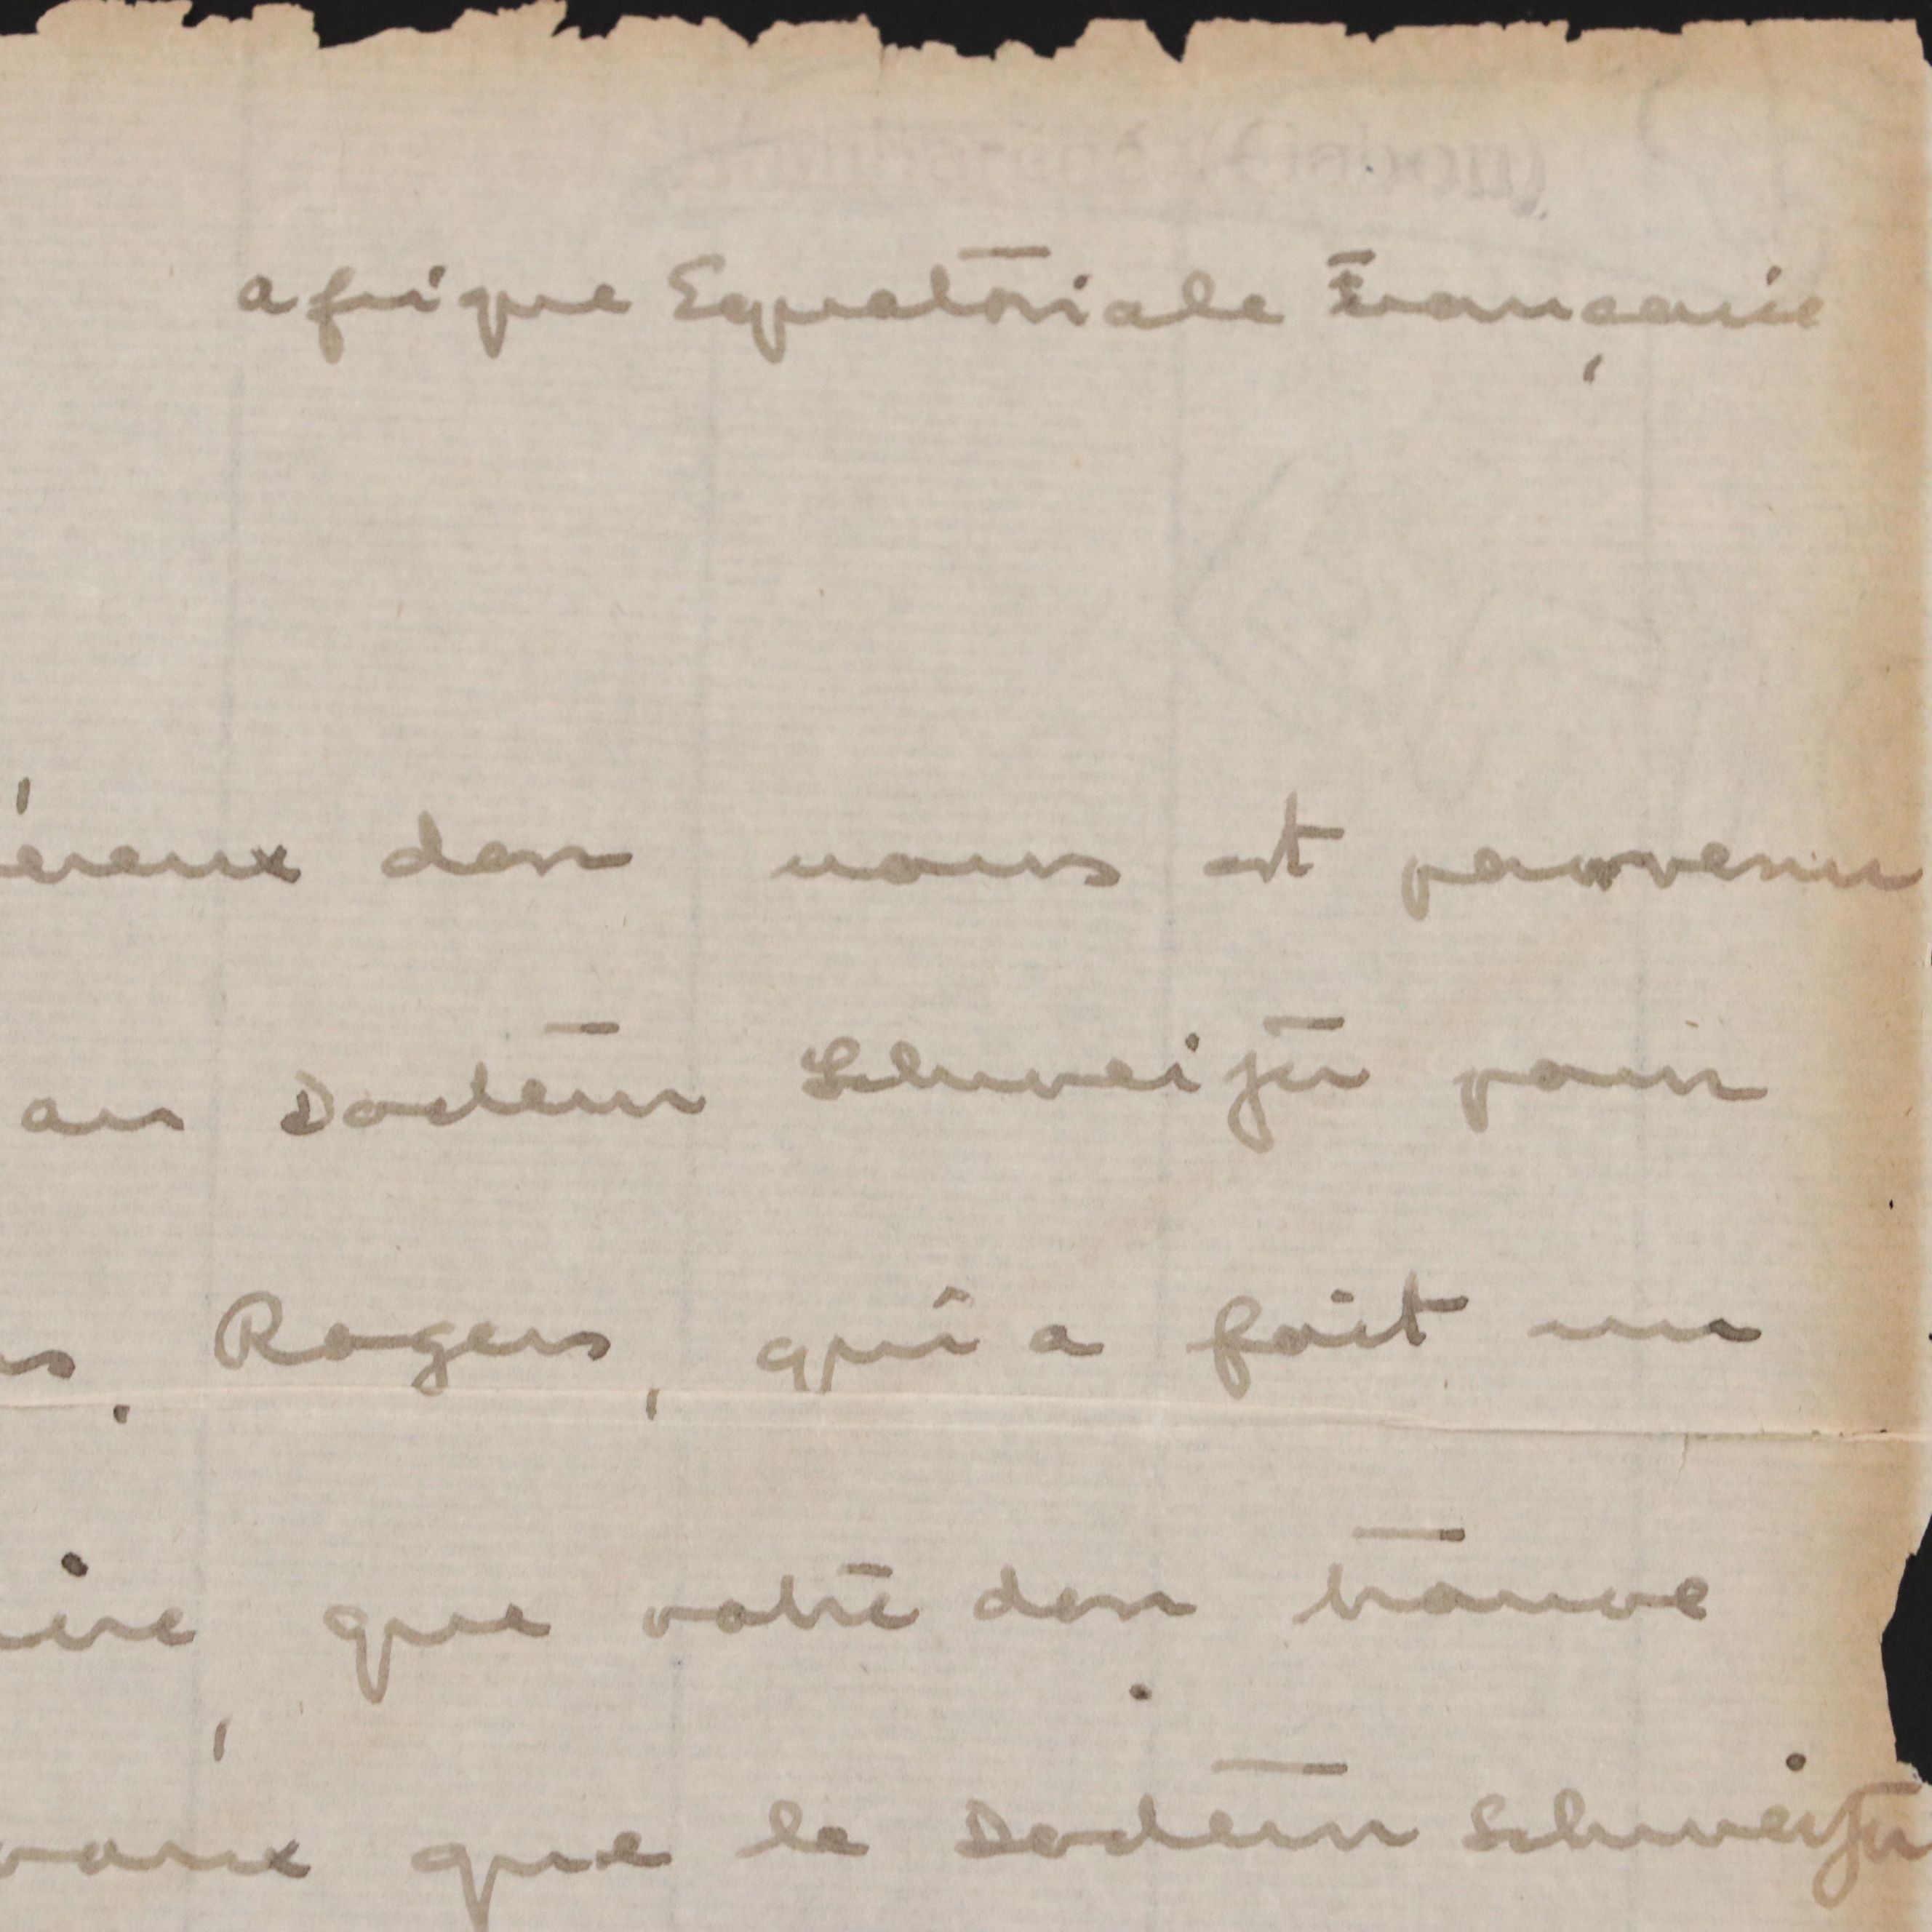 Afrique Equatoriale Française
éreux don nous est parvenu
au Docteur Schweitzer pour
Rogers, qui a fait un
que votre don trouve
vaux que le Docteur Schweitzer